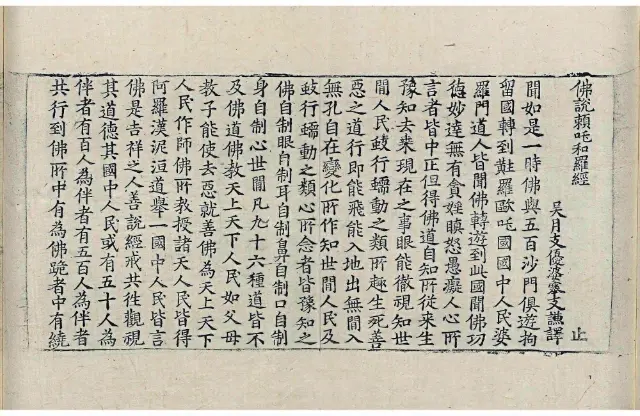 佛說賴吒和羅經
吳月支優婆塞支謙譯
止
聞如是一時佛與五百沙門俱遊拘
留國轉到黈羅歐吒國國中人民婆
羅門道人皆聞佛轉遊到此國聞佛功
德妙達無有貪婬瞋怒愚癡人心所
言者皆中正但得佛道自知所從來生
豫知去來現在之事眼能徹視知世
間人民蚑行蠕動之類所趣生死善
惡之道行即能飛能入地出無間入
無孔自在變化所作知世間人民及
蚑行蠕動之類心所念者皆豫知之
佛自制眼自制耳自制鼻自制口自制
身自制心世間凡九十六種道皆不
及佛道佛教天上天下人民如父母
教子能使去惡就善佛為天上天下
人民作師佛所教授諸天人民皆得
阿羅漢泥洹道舉一國中人民皆言
佛是吉祥之人善說經戒共徃觀視
其道德其國中人民或有五十人為
伴者有百人為伴者有五百人為伴者
共行到佛所中有為佛跪者中有繞